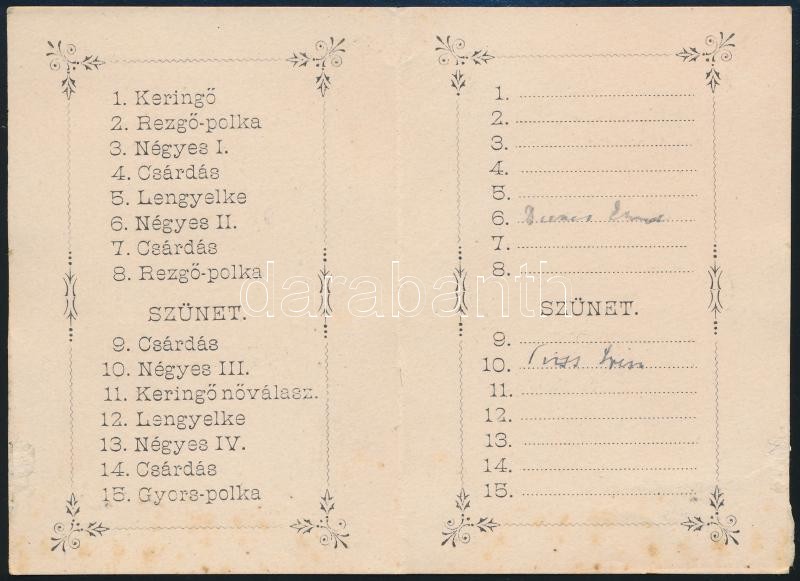 1. Keringő
2. Rezgő-polka
3. Négyes I.
4. Csárdás
5. Lengyelke
6. Négyes II.
7. Csárdás
8. Rezgő-polka
SZÜNET.
9. Csárdás
10. Négyes III.
11. Keringő nőválasz.
12. Lengyelke
13. Négyes IV.
14. Csárdás
15. Gyors-polka
1.
2.
3.
4.
5.
6.
7.
8.
SZÜNET.
9.
10.
11.
12.
13.
14.
15.
darabanth